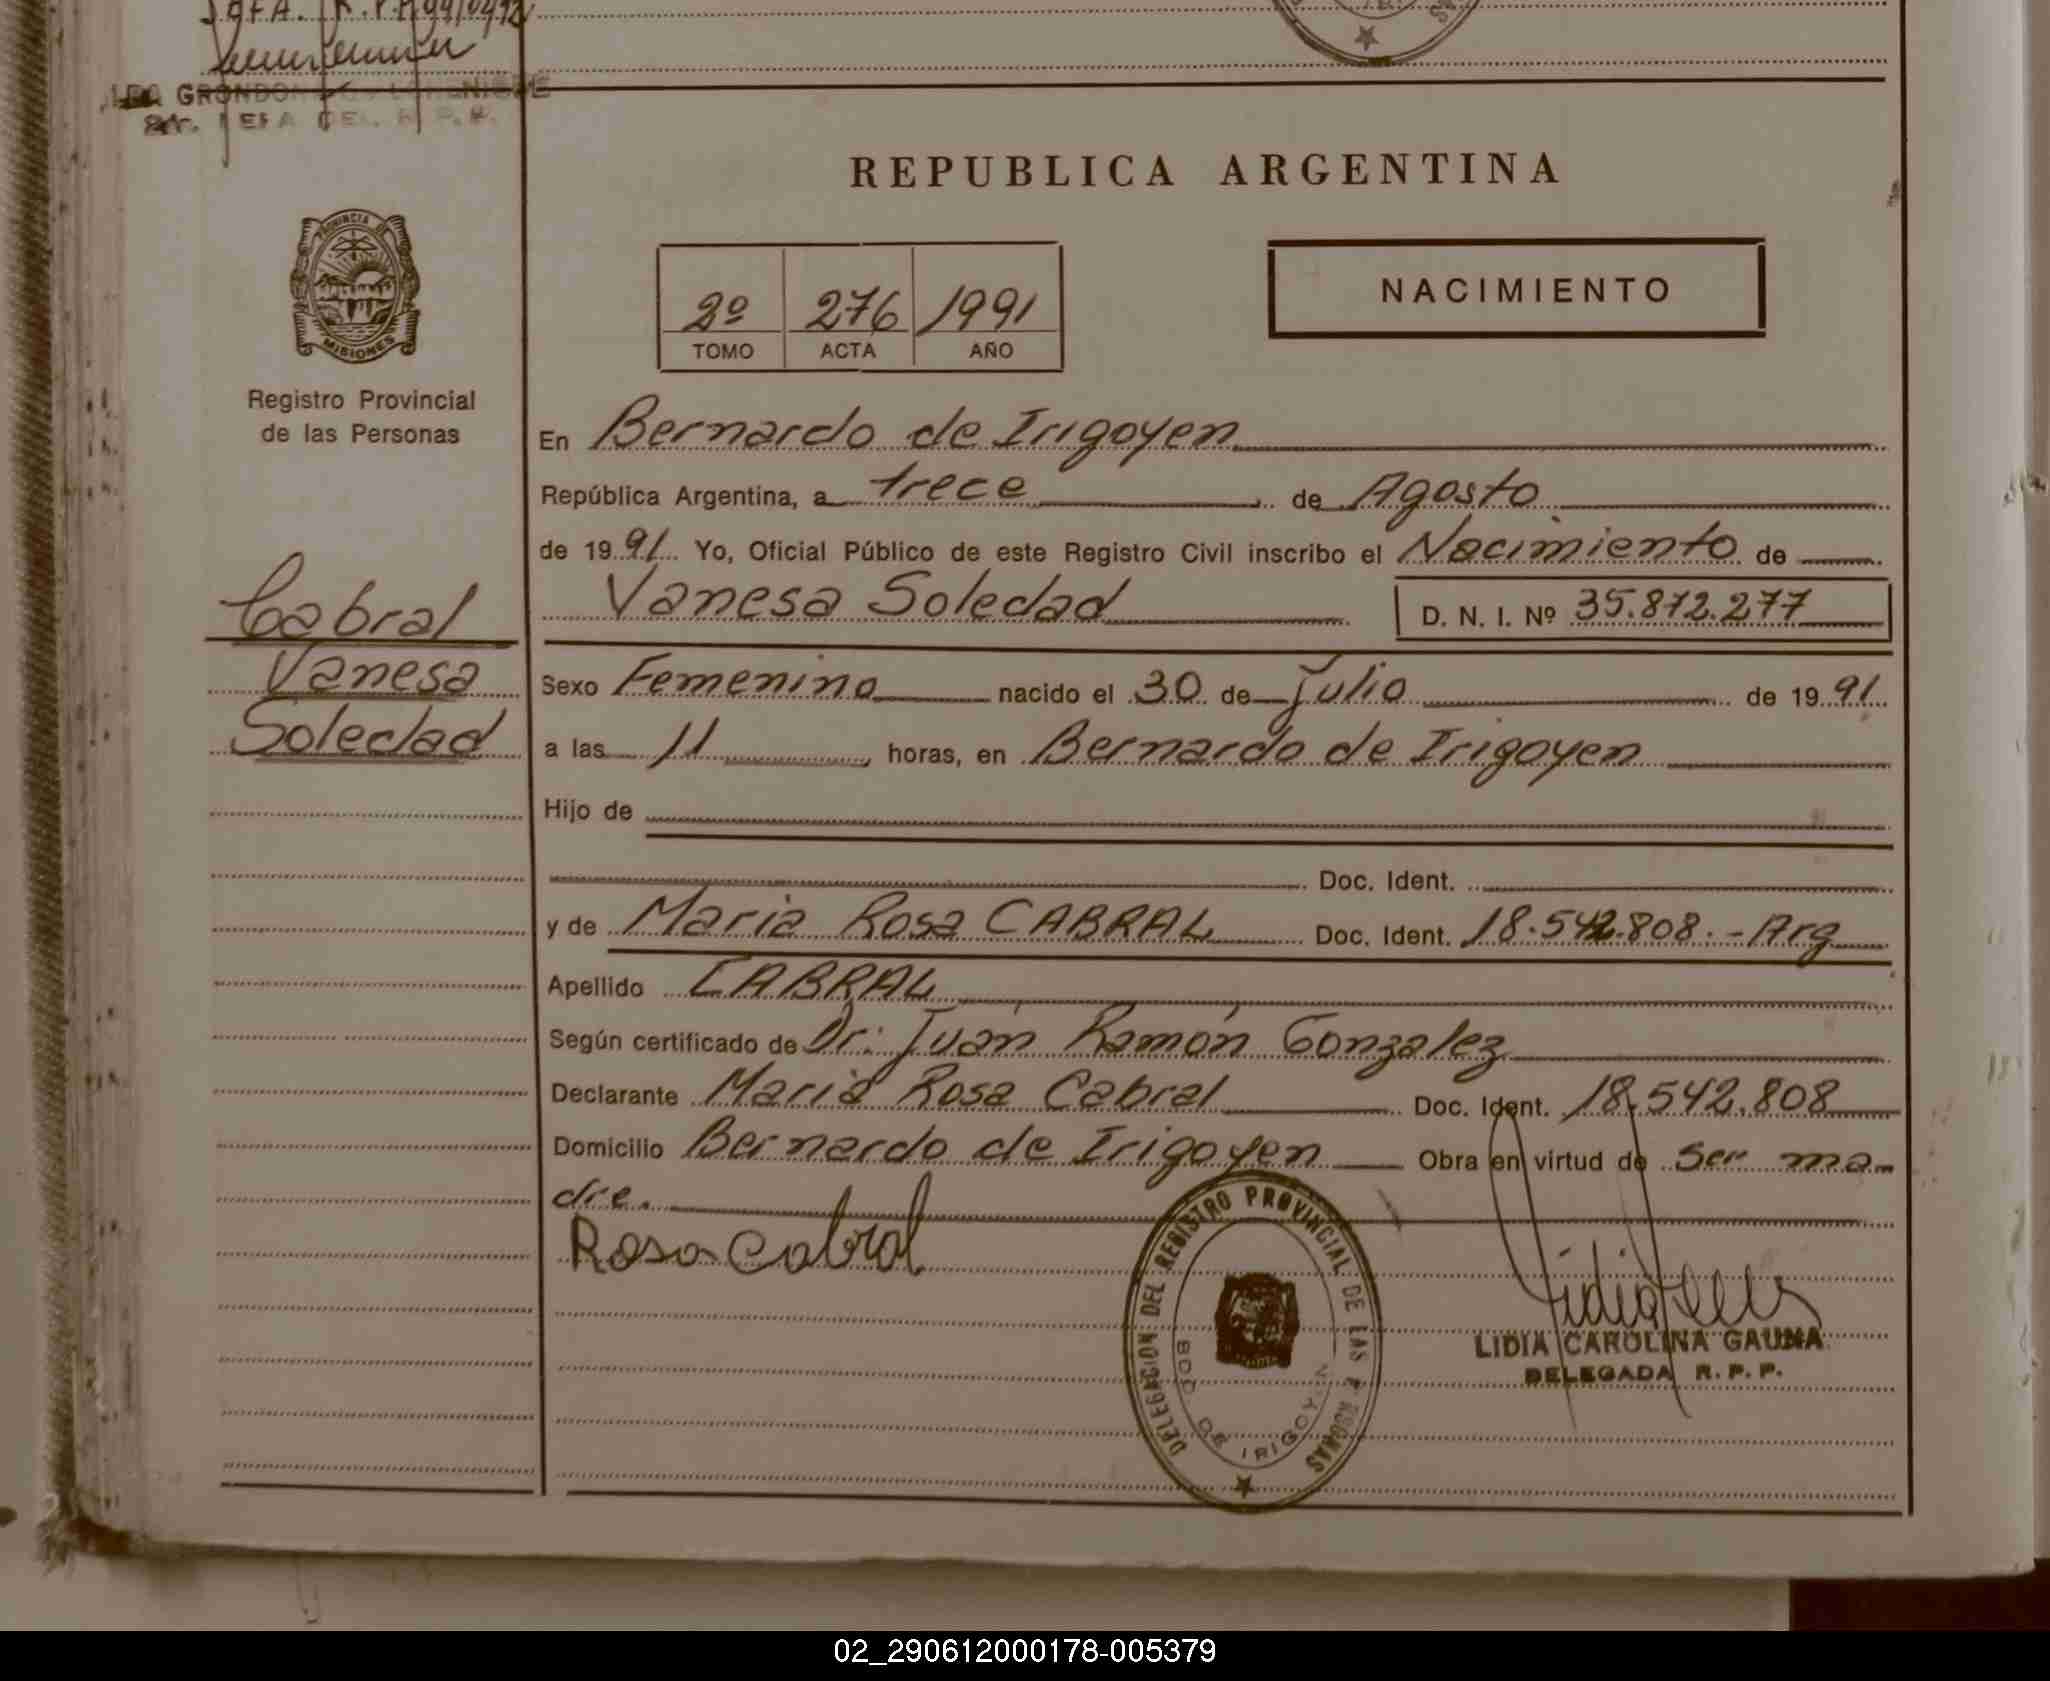 REPUBLICA ARGENTINA
PROVINCIA DE
MISIONES
Registro Provincial
de las Personas
2º 276 1991
TOMO ACTA AÑO
NACIMIENTO
En Bernardo de Irigoyen
República Argentina, a trece de Agosto
de 1991 Yo, Oficial Público de este Registro Civil inscribo el Nacimiento de
Vanesa Soledad D. N. I. Nº 35.872.277
Cabral
Vanesa
Soledad
Sexo Femenino nacido el 30 de Julio de 1991
a las 11 horas, en Bernardo de Irigoyen
Hijo de
Doc. Ident.
y de Maria Rosa CABRAL Doc. Ident. 18.542.808.-Arg
Apellido CABRAL
Según certificado de Dr: Juán Ramón Gonzalez
Declarante Maria Rosa Cabral Doc. Ident. 18.542.808
Domicilio Bernardo de Irigoyen Obra en virtud de ser ma
dre.
Rosa Cabral
DELEGACION DEL REGISTRO PROVINCIAL DE LAS
BDO DE IRIGOYEN
LIDIA CAROLINA GAUNA
DELEGADA R. P. P.
02_290612000178-005379